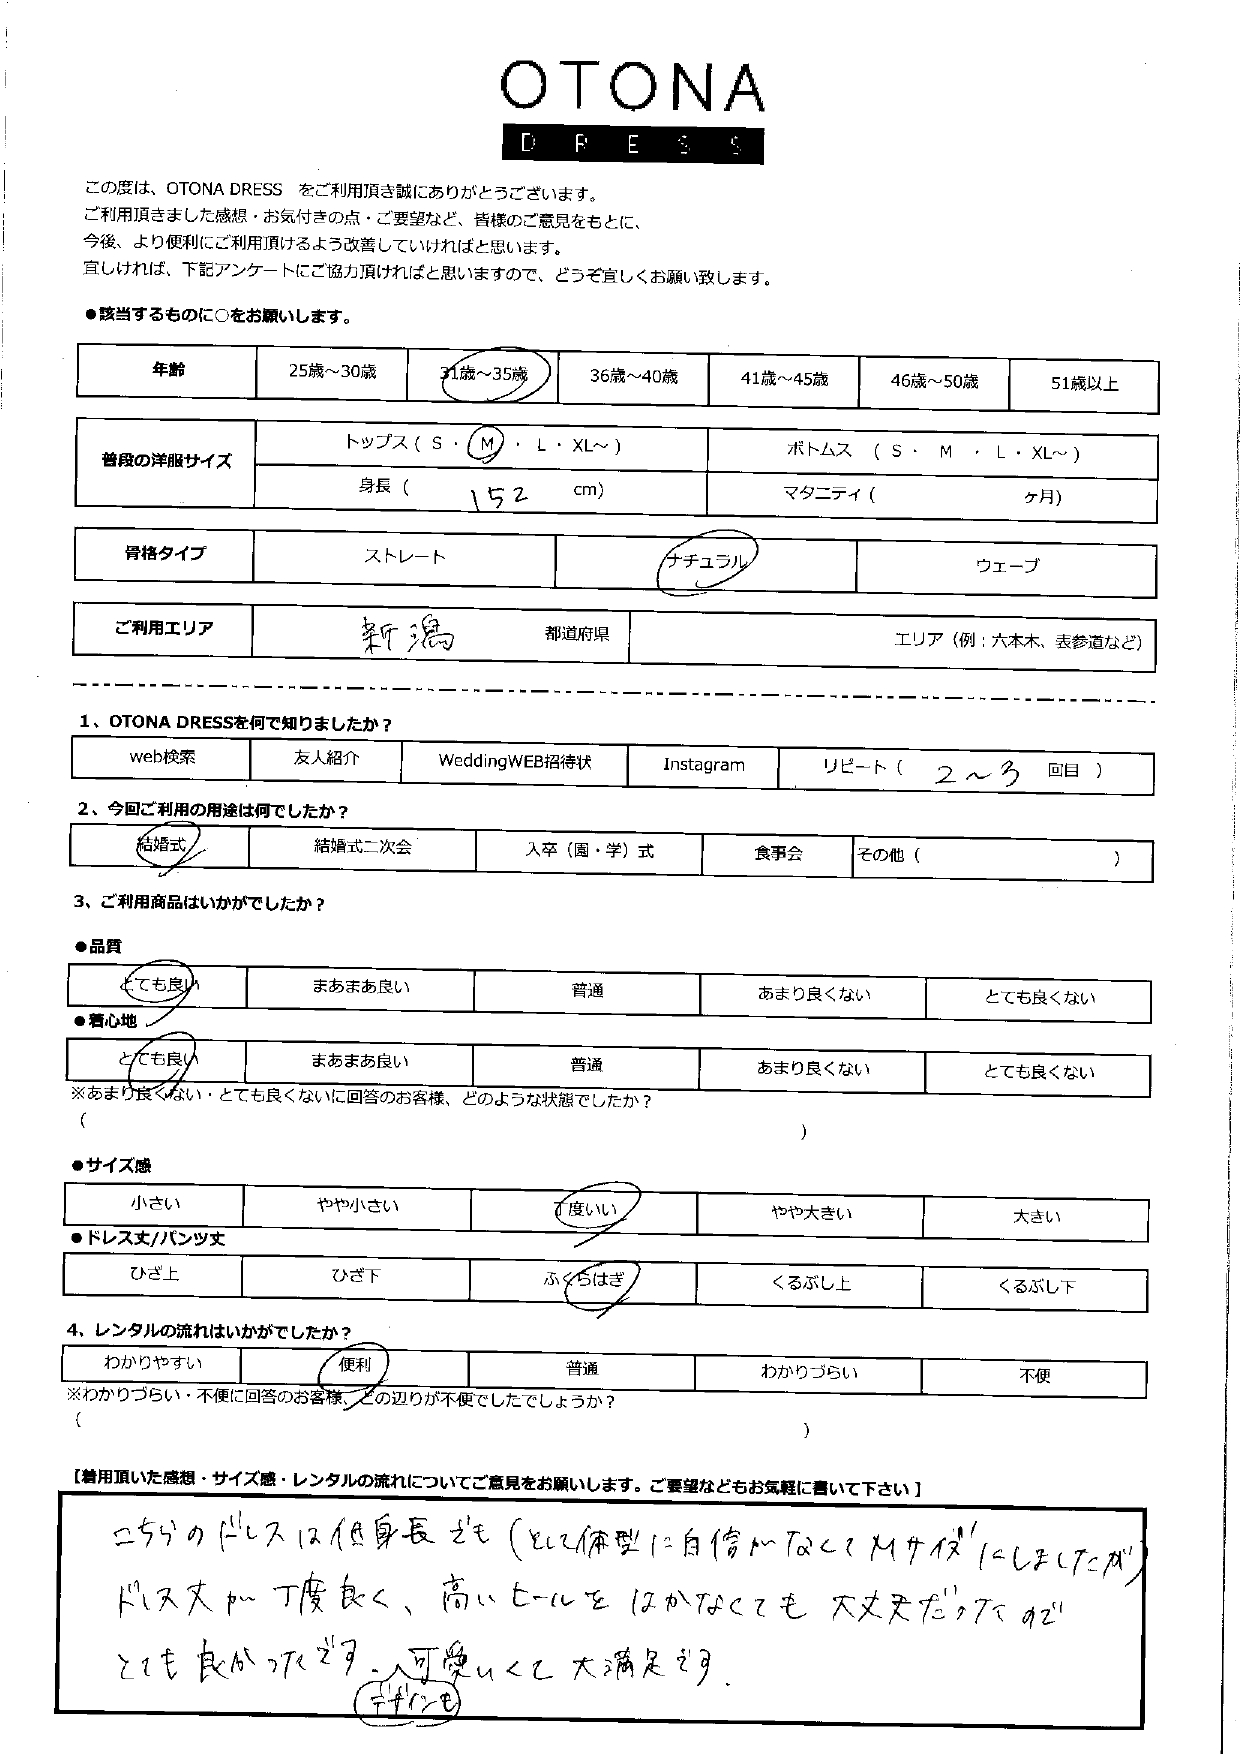 OTONA
DRESS
この度は、OTONA DRESS　をご利用頂き誠にありがとうございます。
ご利用頂きました感想・お気付きの点・ご要望など、皆様のご意見をもとに、
今後、より便利にご利用頂けるよう改善していければと思います。
宜しければ、下記アンケートにご協力頂ければと思いますので、どうぞ宜しくお願い致します。
●該当するものに○をお願いします。
年齢 25歳～30歳 31歳～35歳 36歳～40歳 41歳～45歳 46歳～50歳 51歳以上
普段の洋服サイズ トップス ( S ・ M ・ L ・ XL～ ) ボトムス ( S ・ M ・ L ・ XL～ )
身長 ( 152 cm) マタニティ ( ヶ月)
骨格タイプ ストレート ナチュラル ウェーブ
ご利用エリア 新潟 都道府県 エリア（例：六本木、表参道など）
1、OTONA DRESSを何で知りましたか？
web検索 友人紹介 WeddingWEB招待状 Instagram リピート ( 2～3 回目 )
2、今回ご利用の用途は何でしたか？
結婚式 結婚式二次会 入卒（園・学）式 食事会 その他 ( )
3、ご利用商品はいかがでしたか？
●品質
とても良い まあまあ良い 普通 あまり良くない とても良くない
●着心地
とても良い まあまあ良い 普通 あまり良くない とても良くない
※あまり良くない・とても良くないに回答のお客様、どのような状態でしたか？
( )
●サイズ感
小さい やや小さい 丁度いい やや大きい 大きい
●ドレス丈/パンツ丈
ひざ上 ひざ下 ふくらはぎ くるぶし上 くるぶし下
4、レンタルの流れはいかがでしたか？
わかりやすい 便利 普通 わかりづらい 不便
※わかりづらい・不便に回答のお客様、どの辺りが不便でしたでしょうか？
( )
【着用頂いた感想・サイズ感・レンタルの流れについてご意見をお願いします。ご要望などもお気軽に書いて下さい】
こちらのドレスは低身長でも(そして体型に自信がなくてMサイズにしましたが)
ドレス丈が丁度良く、高いヒールをはかなくても大丈夫だったので
とても良かったです。デザインも可愛いくて大満足です.